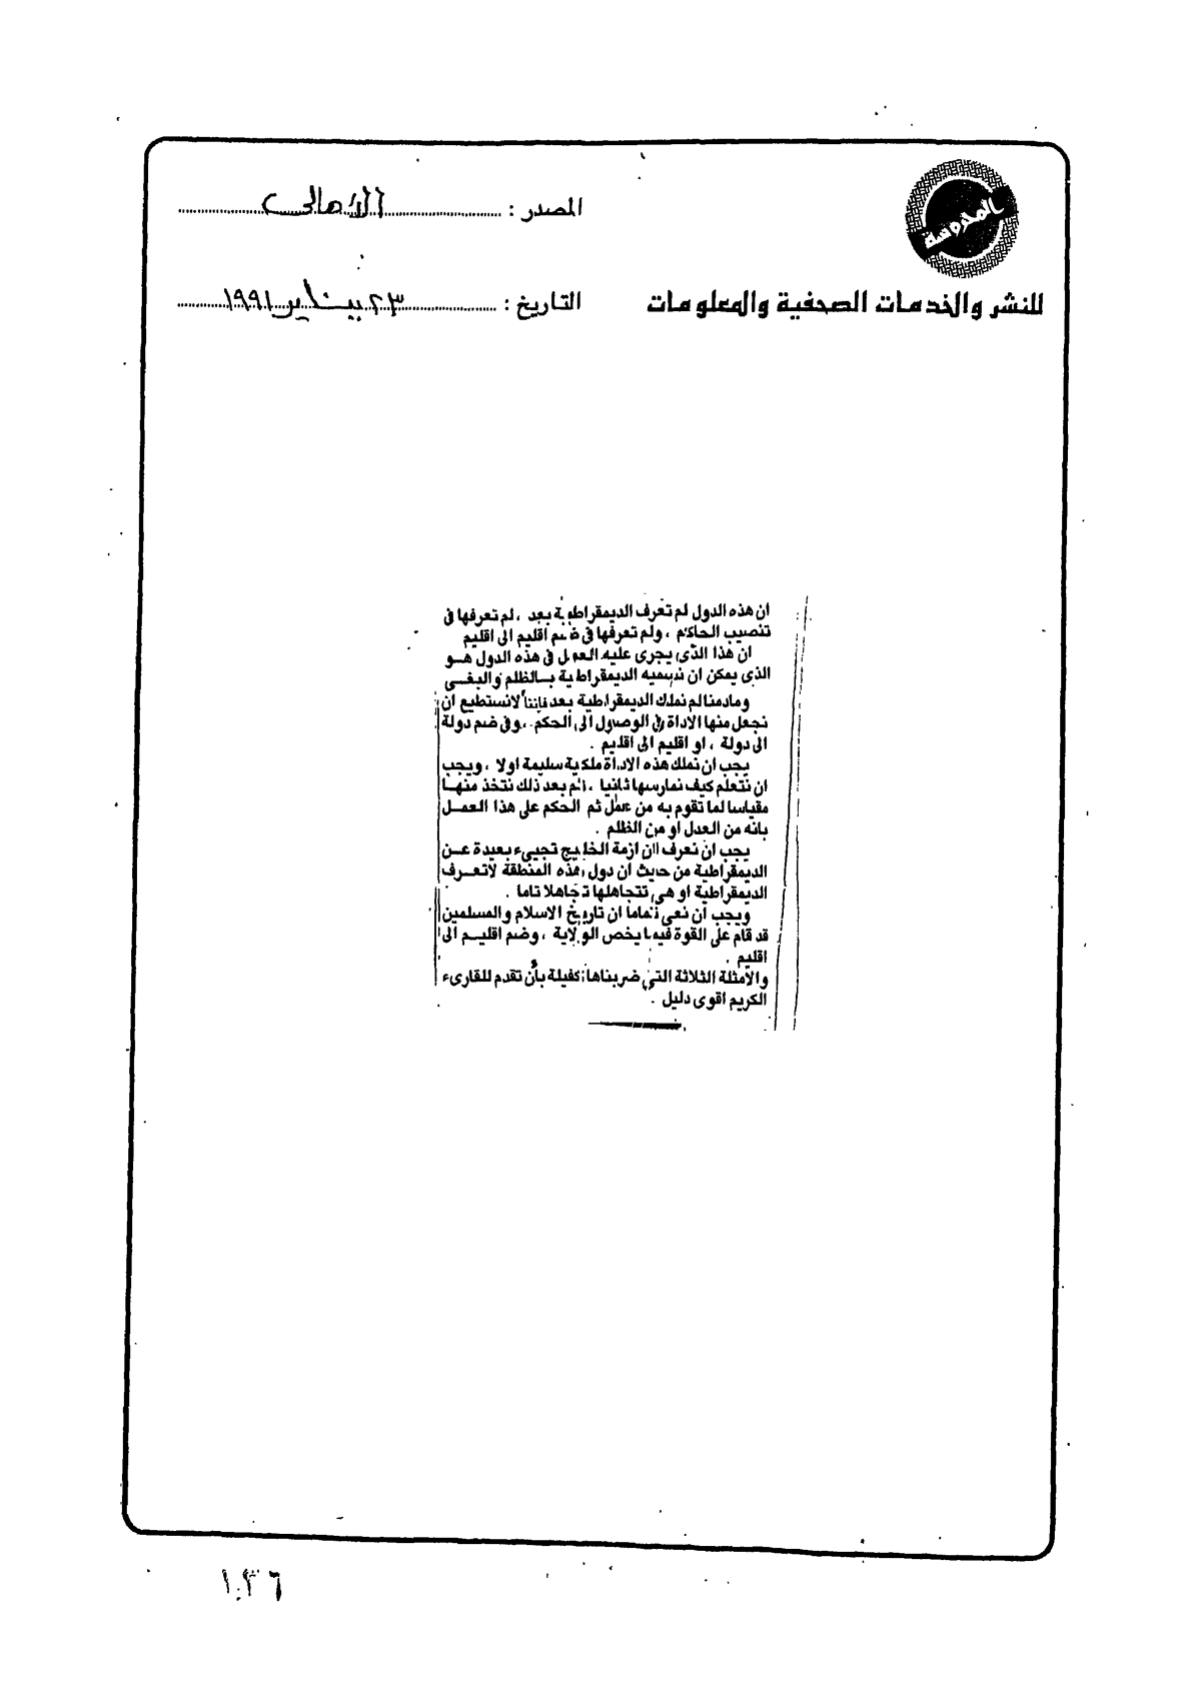 المحروسة
المصدر : الأهالى
للنشر والخدمات الصحفية والمعلومات
التاريخ : ٢٣ يناير ١٩٩١
ان هذه الدول لم تعرف الديمقراطية بعد ، لم تعرفها فى
تنصيب الحاكم ، ولم تعرفها فى ضم اقليم الى اقليم
ان هذا الذى يجرى عليه العمل فى هذه الدول هو
الذى يمكن ان نسميه الديمقراطية بالظلم والبغى
ومادمنا لم نملك الديمقراطية بعد فإننا لانستطيع ان
نجعل منها الاداة فى الوصول الى الحكم ، وفى ضم دولة
الى دولة ، او اقليم الى اقليم .
يجب ان نملك هذه الاداة ملكية سليمة اولا ، ويجب
ان نتعلم كيف نمارسها ثانيا ، ثم بعد ذلك نتخذ منها
مقياسا لما تقوم به من عمل ثم الحكم على هذا العمل
بانه من العدل او من الظلم .
يجب ان نعرف ان ازمة الخليج تجيىء بعيدة عن
الديمقراطية من حيث ان دول هذه المنطقة لاتعرف
الديمقراطية او هى تتجاهلها تجاهلا تاما .
ويجب ان نعى تماما ان تاريخ الاسلام والمسلمين
قد قام على القوة فيما يخص الولاية ، وضم اقليم الى
اقليم .
والأمثلة الثلاثة التى ضربناها كفيلة بأن تقدم للقارىء
الكريم اقوى دليل .